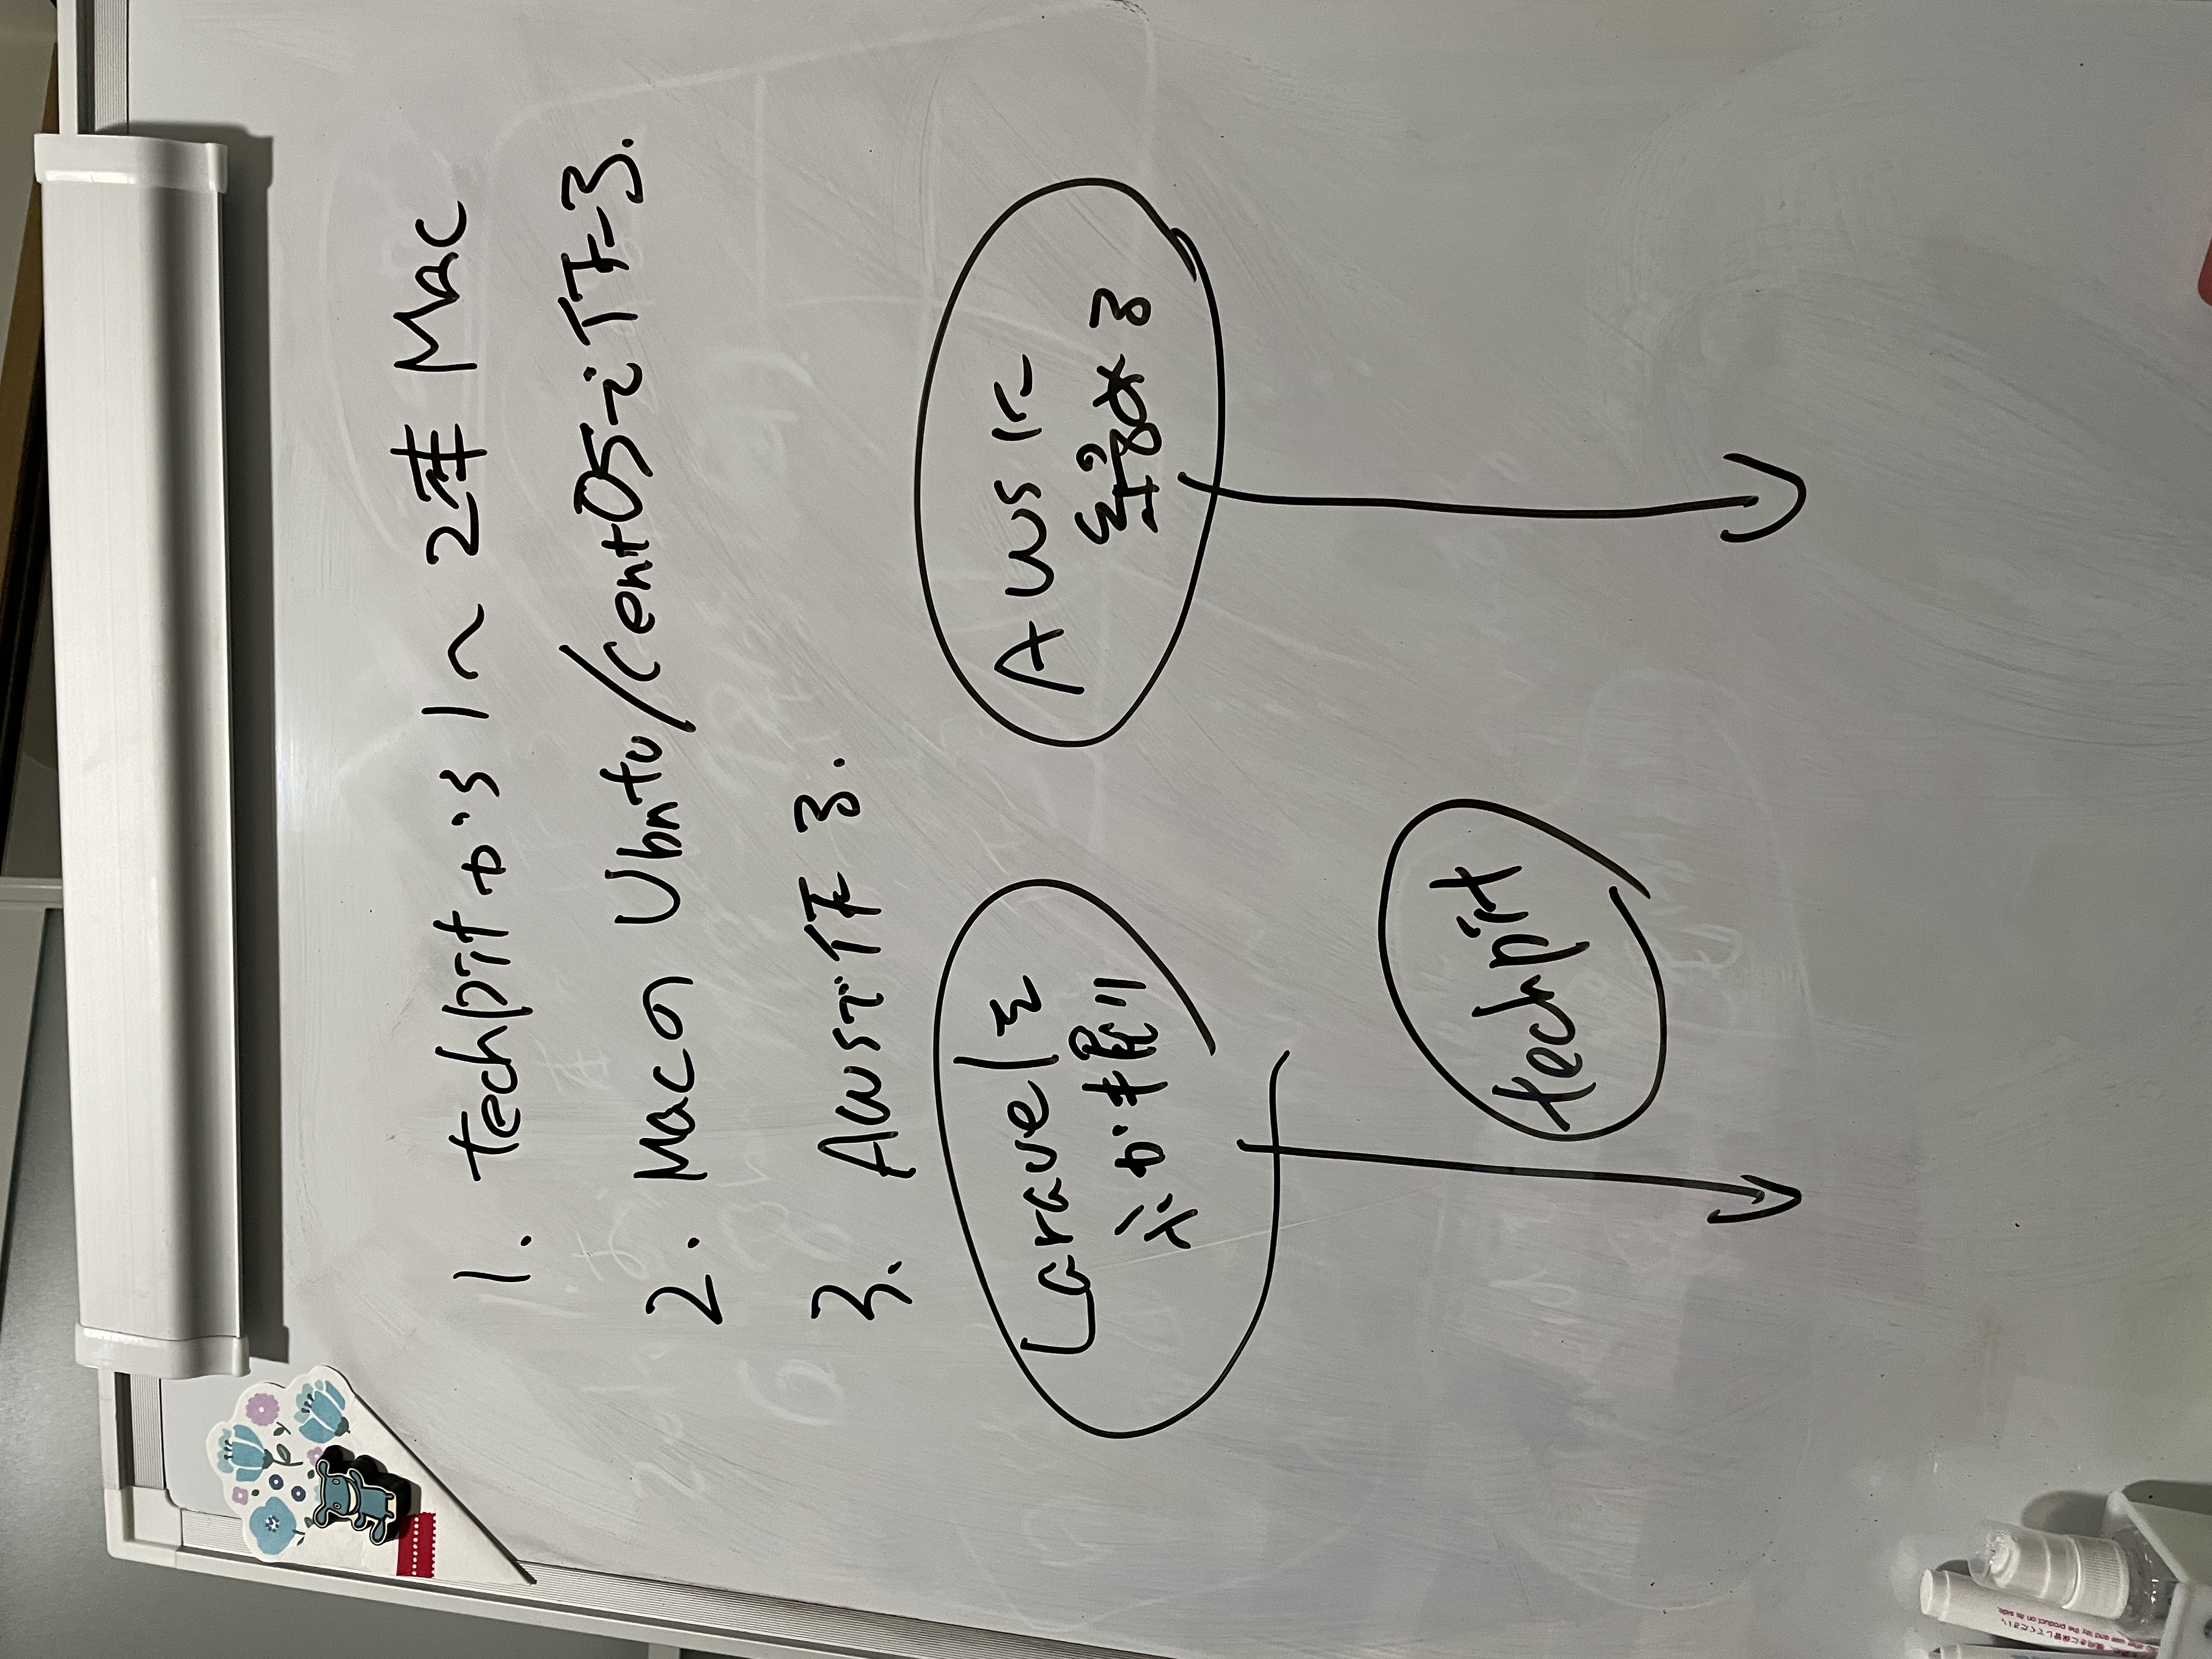 1. techpitから 1〜2 Mac
2. Macの Ubntu/CentOSで作る.
3. AWSで作る.
Laravelを
ふか掘り
AWSに
techpit